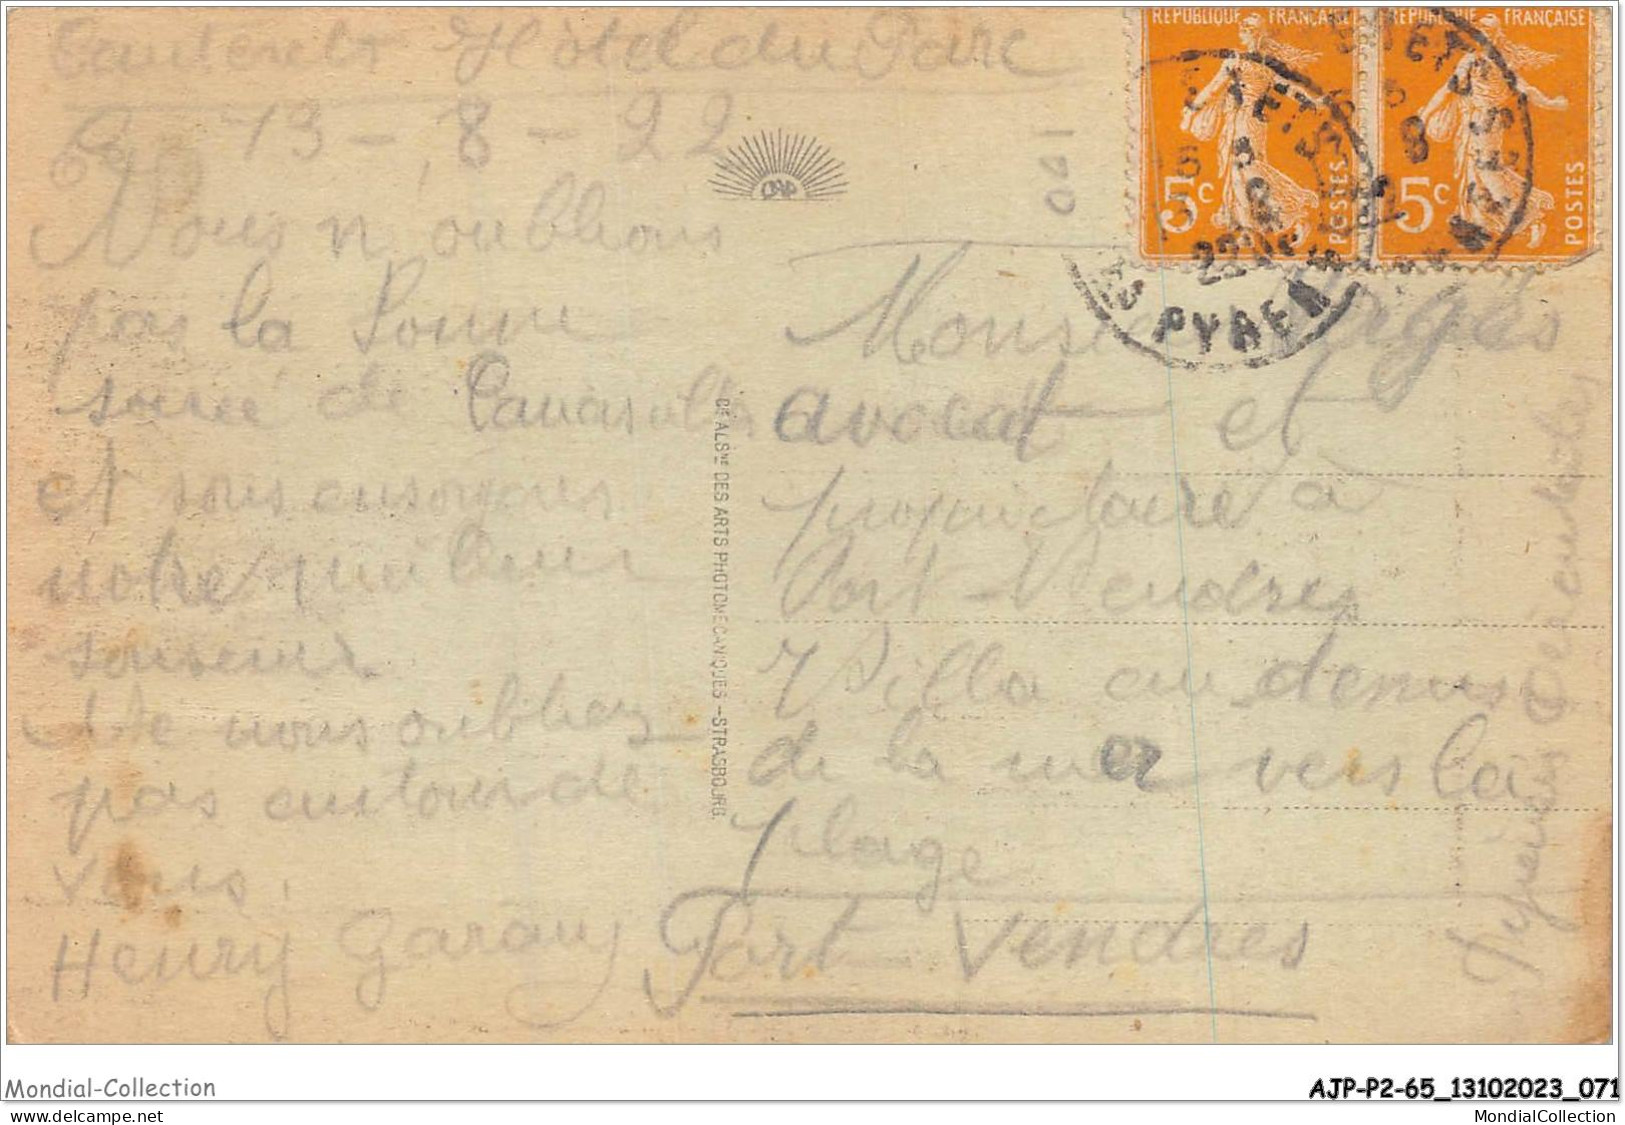 Cauterets Hôtel du Parc
13-8-22
Nous n'oublions
pas la bonne
soirée de
et vous envoyons
notre meilleur
souvenir
Ne nous oubliez
pas autour de
vous.
Henry Garauy
140
RÉPUBLIQUE FRANÇAISE
5c
POSTES
RÉPUBLIQUE FRANÇAISE
5c
POSTES
PYRÉN
Monsieur
avocat et
propriétaire à
Port-Vendres
Villa au dessus
de la mer vers la
plage
Port Vendres
Pyrénées Orientales
CIE ALSNE DES ARTS PHOTOMECANIQUES - STRASBOURG.
Mondial-Collection
AJP-P2-65_13102023_071
www.delcampe.net
MondialCollection